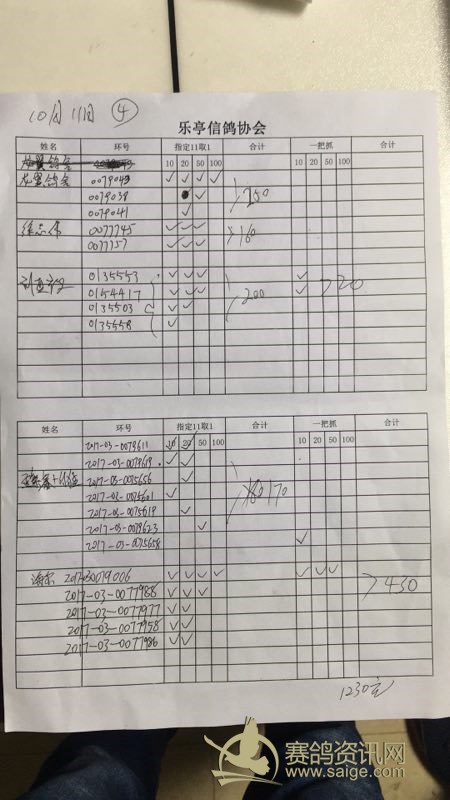 10月11日 ④
乐亭信鸽协会
姓名 环号 指定11取1 合计 一把抓 合计
10 20 50 100 10 20 50 100
0079043 ✓ ✓ ✓ ✓
0079039 ✓ 250
0079041 ✓
0077745 ✓ ✓ ✓ 160
0077757 ✓ ✓ ✓
0135553 ✓ ✓ ✓ ✓
0154417 ✓ ✓ ✓ 200 ✓ 20
0135503 ✓ ✓ ✓
0135558 ✓
姓名 环号 指定11取1 合计 一把抓 合计
2017-03-0079611 10 20 50 100 10 20 50 100
2017-03-0079619 ✓ ✓
2017-03-0075656 ✓
2017-03-0075601 ✓ 170
2017-03-0075619 ✓
2017-03-0079623 ✓
2017-03-0075658 ✓
2017-30079006 ✓ ✓ ✓ ✓ ✓ ✓ ✓
2017-03-0077988 ✓ ✓ ✓ 430
2017-03-0077977 ✓ ✓
2017-03-0077958 ✓ ✓
2017-03-0077986 ✓ ✓
1230元
赛鸽资讯网
www.saige.com